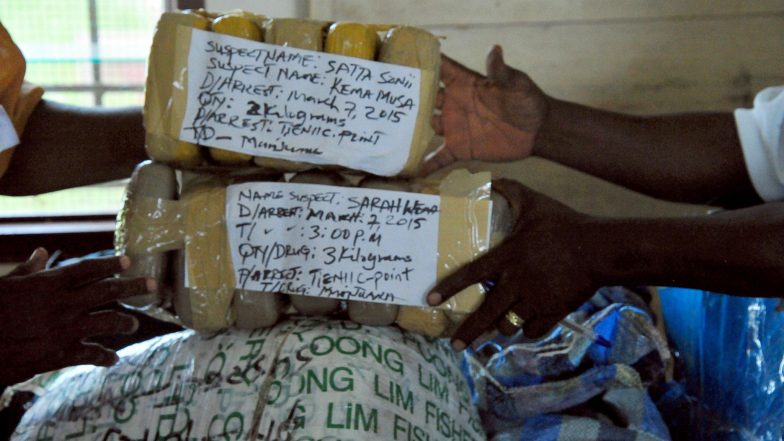 SUSPECT NAME: SATTA SONII
SUSPECT NAME: KEMA MUSA
D/ARREST: March 7, 2015
QTY: 2 Kilograms
P/ARREST: TIENIIC-POINT
NAME SUSPECT: SARAH WEAR
D/ARREST: MARCH 7, 2015
T/ " " : 3:00 P.M
QTY/DRUG: 3 Kilograms
P/ARREST: TIENIIC-POINT
T/DRUG: MARIJUANA
OONG LIM FISHE
ONG LIM FISHER
LIM FISHE